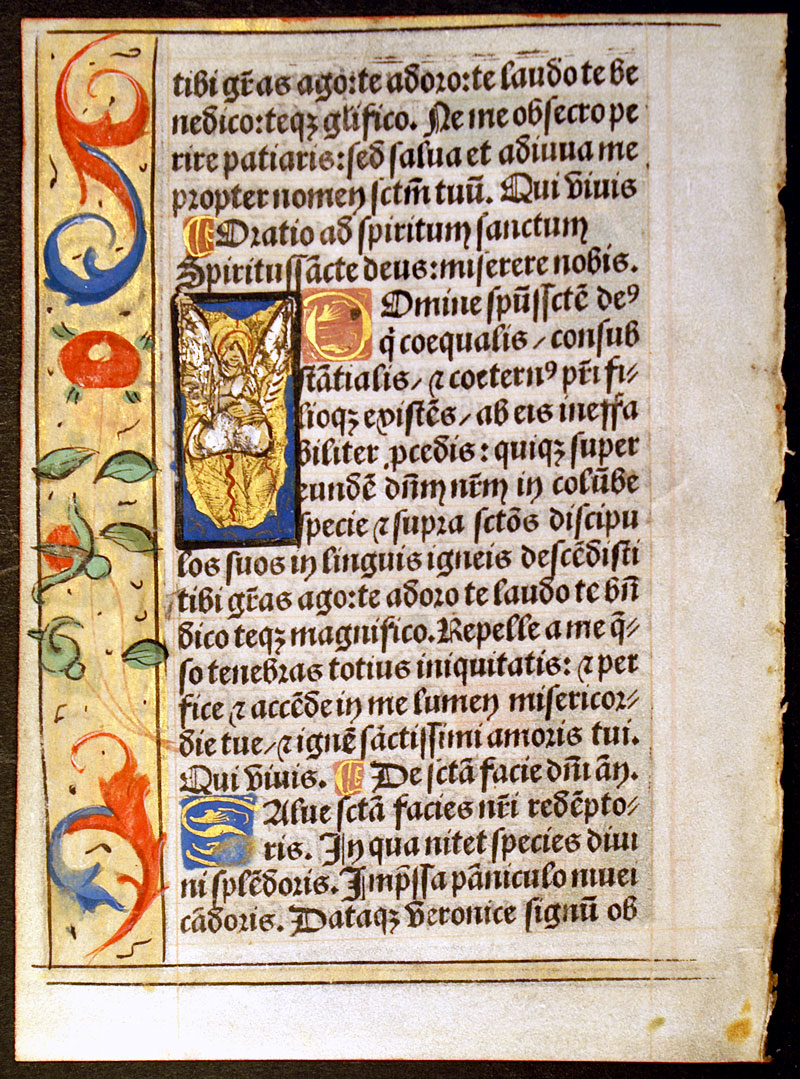 tibi gr̄as ago:te adoro:te laudo te be
nedico:teqꝫ glifico. Ne me obsecro pe
rire patiaris:sed salua et adiuua me
propter nomen sctm̄ tuū. Qui viuis
Oratio ad spiritum sanctum
Spiritussācte deus:miserere nobis.
Domine spūssctē deꝰ
q̇ coequalis/consub
stātialis/⁊ coeternꝰ pr̄i fi⸗
lioqꝫ existēs/ab eis ineffa
biliter ꝓcedis: quiqꝫ super
eundē dn̄m nr̄m in colūbe
specie ⁊ supra sctōs discipu
los suos in linguis igneis descēdisti
tibi gr̄as ago:te adoro te laudo te bn̄
dico teqꝫ magnifico. Repelle a me q̄⸗
so tenebras totius iniquitatis: ⁊ per
fice ⁊ accēde in me lumen misericor⸗
die tue/⁊ ignē sāctissimi amoris tui.
Qui viuis. De sctā facie dn̄i an̄.
Salue sctā facies nr̄i redēpto⸗
ris. In qua nitet species diui
ni splēdoris. Imp̄ssa pāniculo niuei
cādoris. Dataqꝫ veronice signū ob